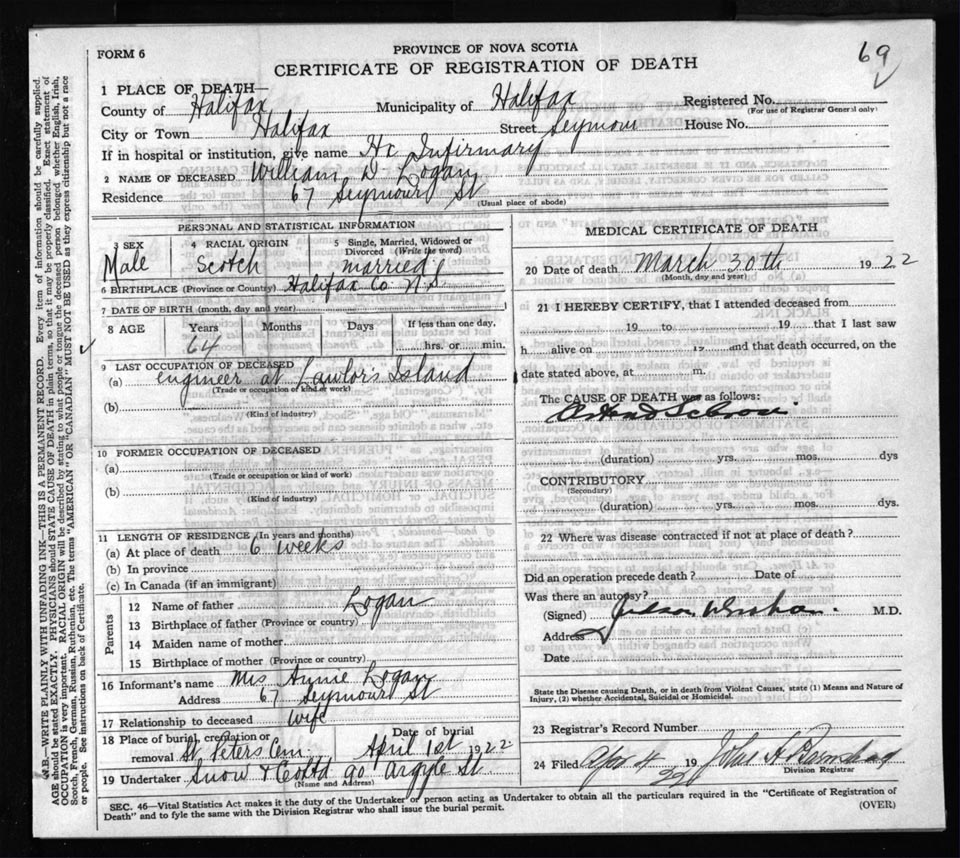 69
FORM 6
PROVINCE OF NOVA SCOTIA
CERTIFICATE OF REGISTRATION OF DEATH
1 PLACE OF DEATH—
County of Halifax Municipality of Halifax Registered No.
(For use of Registrar General only)
City or Town Halifax Street Seymour House No.
If in hospital or institution, give name Hx Infirmary
2 NAME OF DECEASED William D. Logan
Residence 67 Seymour St
(Usual place of abode)
PERSONAL AND STATISTICAL INFORMATION
3 SEX Male
4 RACIAL ORIGIN Scotch
5 Single, Married, Widowed or Divorced (Write the word) married
6 BIRTHPLACE (Province or Country) Halifax Co N.S.
7 DATE OF BIRTH (month, day and year)
8 AGE Years Months Days If less than one day,
64 hrs. or min.
9 LAST OCCUPATION OF DECEASED
(a) engineer at Lawlor's Island
(Trade or occupation or kind of work)
(b)
(Kind of industry)
10 FORMER OCCUPATION OF DECEASED
(a)
(Trade or occupation or kind of work)
(b)
(Kind of industry)
11 LENGTH OF RESIDENCE (In years and months)
(a) At place of death 6 weeks
(b) In province
(c) In Canada (if an immigrant)
Parents
12 Name of father Logan
13 Birthplace of father (Province or country)
14 Maiden name of mother
15 Birthplace of mother (Province or country)
16 Informant's name Mrs Annie Logan
Address 67 Seymour St
17 Relationship to deceased wife
18 Place of burial, cremation or removal St Peters Cem. Date of burial April 1st 1922
19 Undertaker Snow & Co Ltd 90 Argyle St
(Name and Address)
MEDICAL CERTIFICATE OF DEATH
20 Date of death March 30th 1922
(Month, day and year)
21 I HEREBY CERTIFY, that I attended deceased from
19 to 19 that I last saw
h alive on 19 and that death occurred, on the
date stated above, at m.
The CAUSE OF DEATH was as follows:
(duration) yrs. mos. dys
CONTRIBUTORY
(Secondary)
(duration) yrs. mos. dys.
22 Where was disease contracted if not at place of death?
Did an operation precede death? Date of
Was there an autopsy?
(Signed) M.D.
Address
Date
State the Disease causing Death, or in death from Violent Causes, state (1) Means and Nature of
Injury, (2) whether Accidental, Suicidal or Homicidal.
23 Registrar's Record Number
24 Filed Apr 4 1922 John A
Division Registrar
SEC. 46—Vital Statistics Act makes it the duty of the Undertaker or person acting as Undertaker to obtain all the particulars required in the "Certificate of Registration of
Death" and to fyle the same with the Division Registrar who shall issue the burial permit.
(OVER)
N.B.—WRITE PLAINLY WITH UNFADING INK—THIS IS A PERMANENT RECORD. Every item of information should be carefully supplied.
AGE should be stated EXACTLY. PHYSICIANS should STATE CAUSE OF DEATH in plain terms, so that it may be properly classified. Exact statement of
OCCUPATION is very important. RACIAL ORIGIN will be described by stating to what people or tongue the deceased person belonged whether English, Irish,
Scotch, French, German, Russian, Ruthenian, etc. The terms "AMERICAN" OR "CANADIAN" MUST NOT BE USED as they express citizenship but not a race
or people. See instructions on back of Certificate.